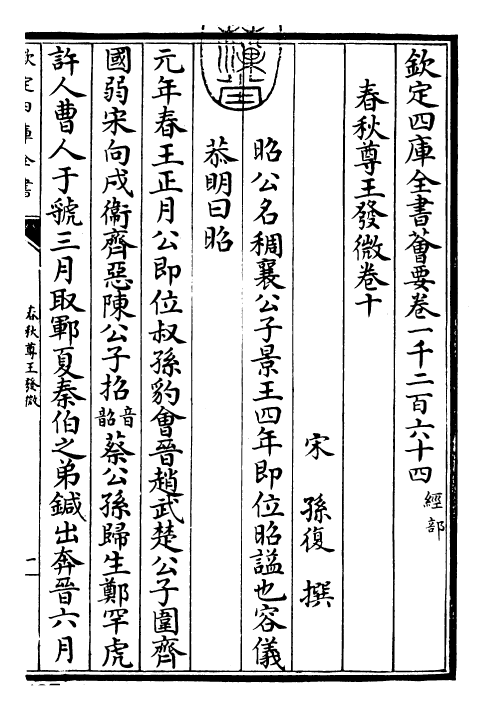 欽定四庫全書薈要卷一千二百六十四 經部
春秋尊王發微卷十
宋 孫復 撰
昭公名稠襄公子景王四年即位昭謚也容儀
恭明曰昭
元年春王正月公即位叔孫豹會晉趙武楚公子圍齊
國弱宋向戌衞齊惡陳公子招音韶蔡公孫歸生鄭罕虎
許人曹人于虢三月取鄆夏秦伯之弟鍼出奔晉六月
欽定四庫全書
春秋尊王發微
一